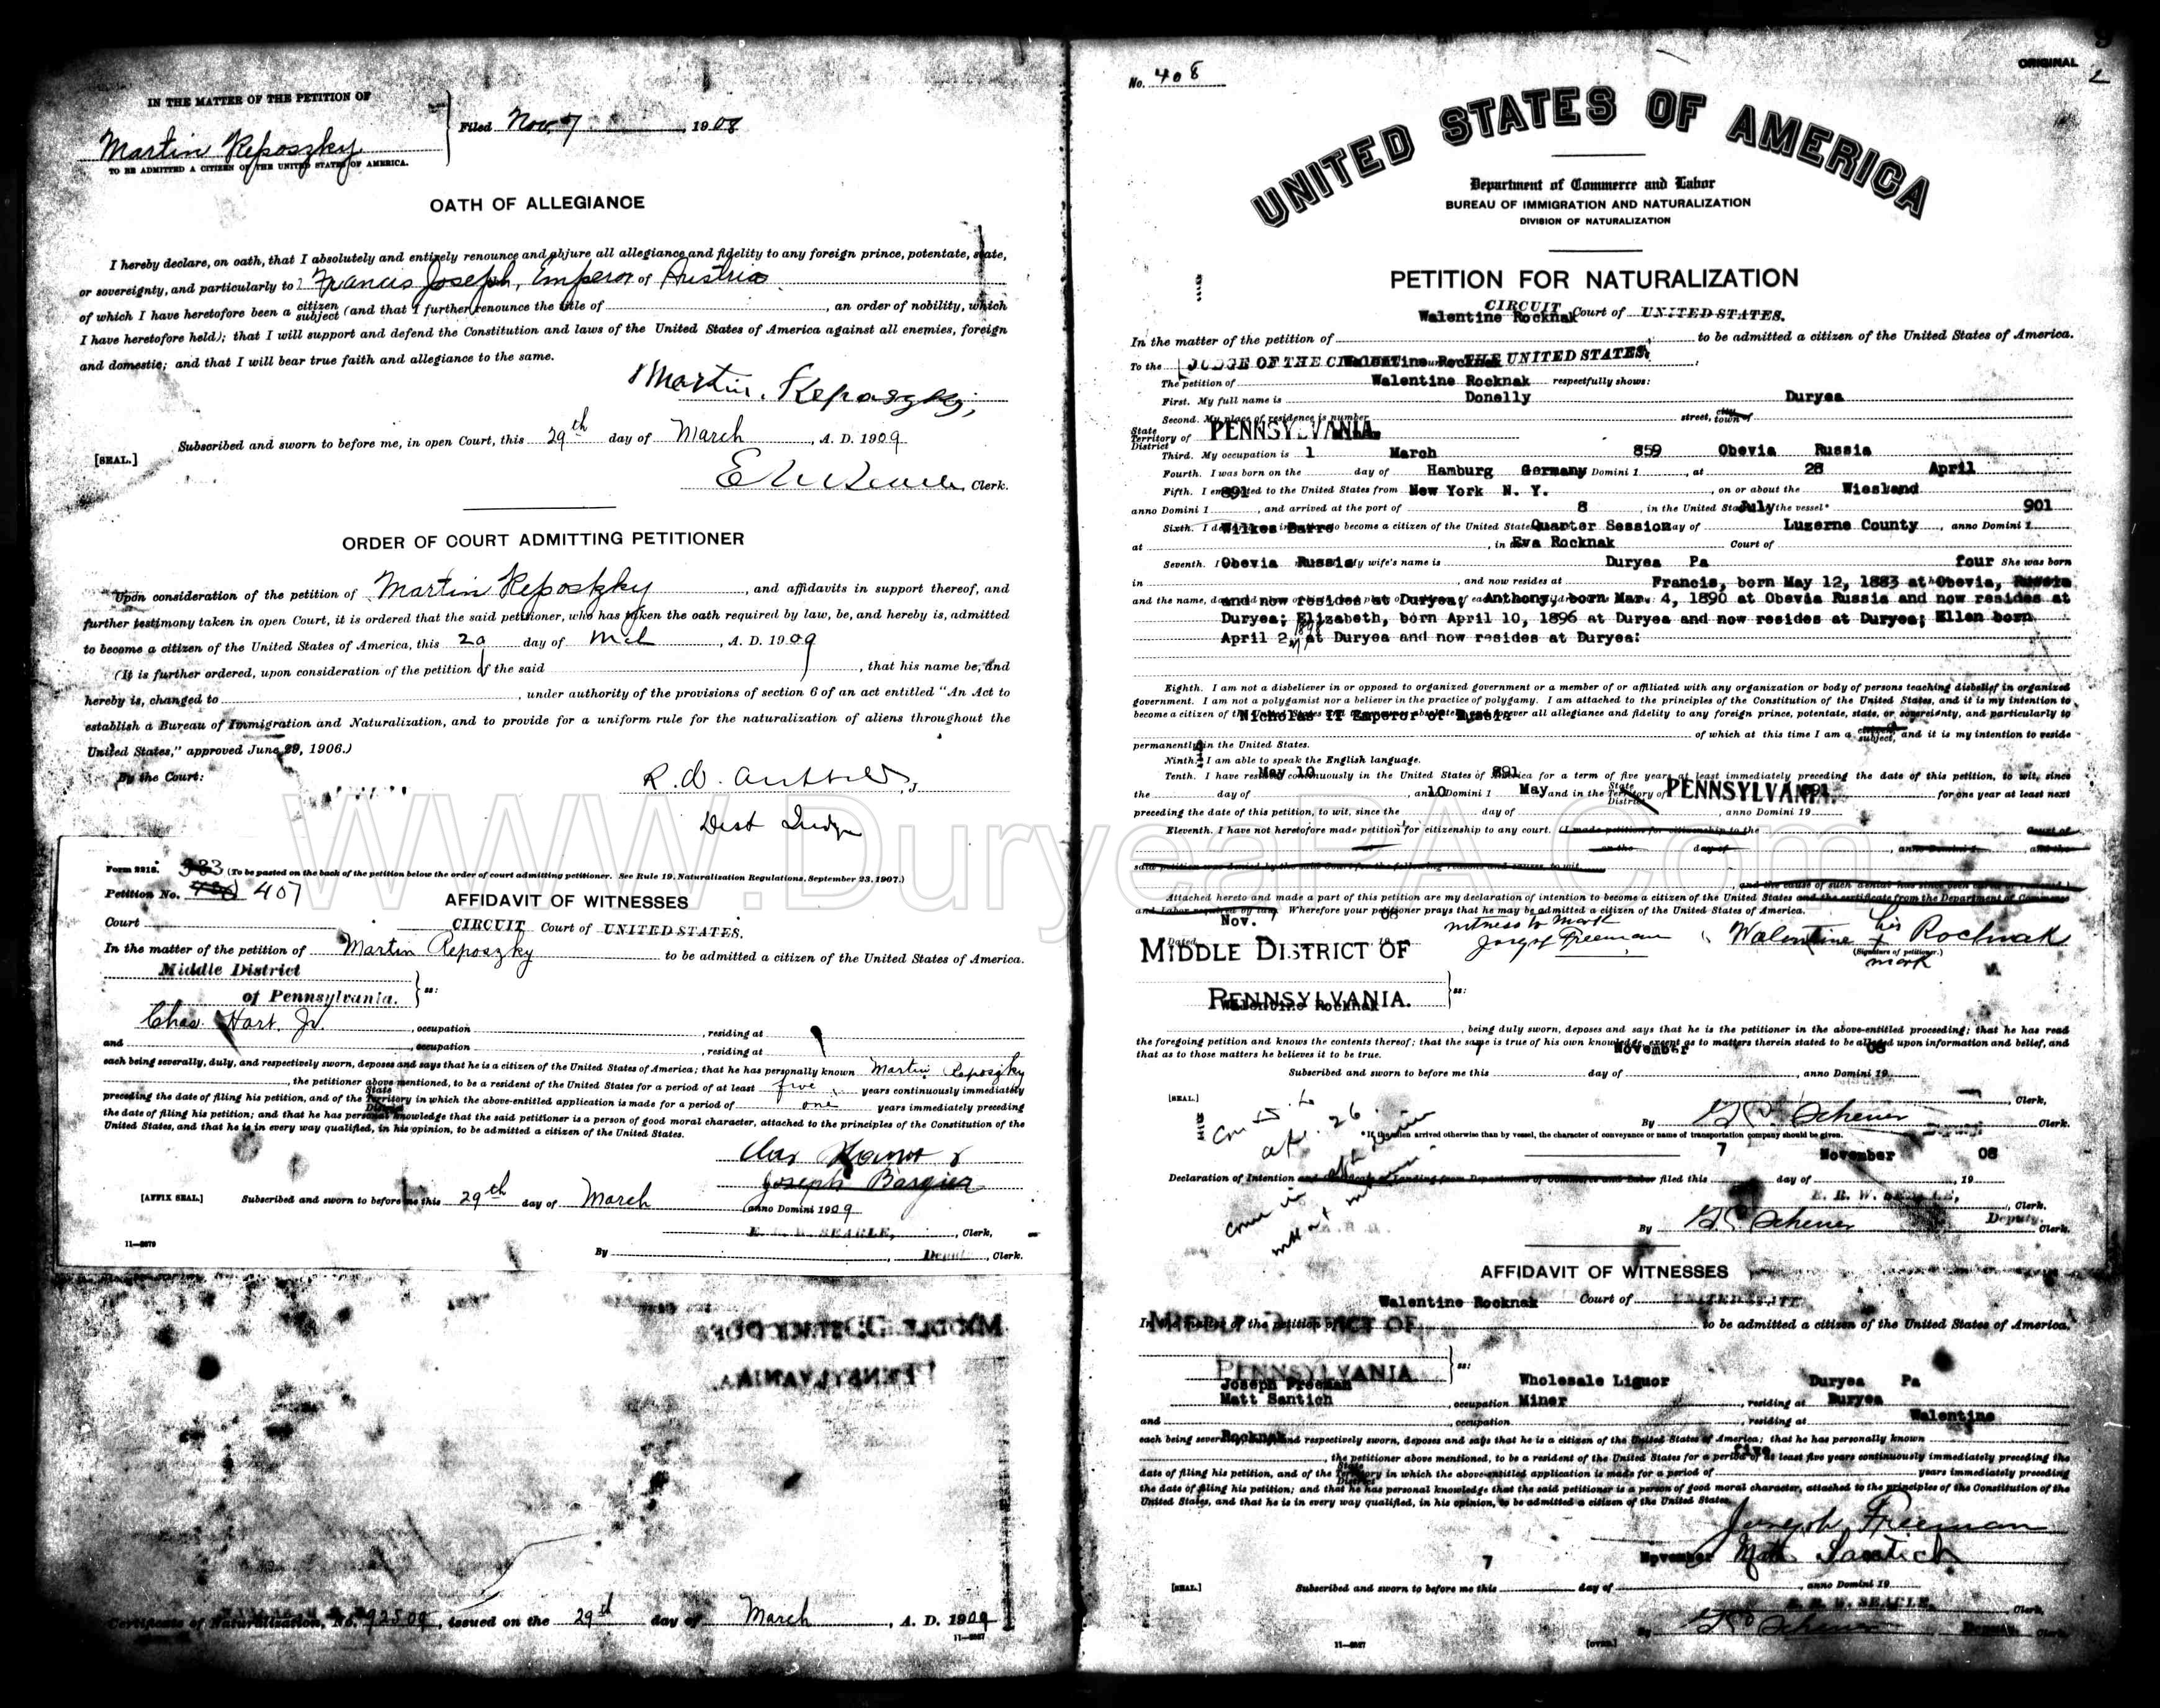 IN THE MATTER OF THE PETITION OF
Martin Reposzky
TO BE ADMITTED A CITIZEN OF THE UNITED STATES OF AMERICA.
Filed Nov. 7 1908
OATH OF ALLEGIANCE
I hereby declare, on oath, that I absolutely and entirely renounce and abjure all allegiance and fidelity to any foreign prince, potentate, state,
or sovereignty, and particularly to Francis Joseph, Emperor of Austria
of which I have heretofore been a citizen subject (and that I further renounce the title of , an order of nobility, which
I have heretofore held); that I will support and defend the Constitution and laws of the United States of America against all enemies, foreign
and domestic; and that I will bear true faith and allegiance to the same.
Martin Reposzky
Subscribed and sworn to before me, in open Court, this 29th day of March, A. D. 1909
[SEAL.]
Clerk.
ORDER OF COURT ADMITTING PETITIONER
Upon consideration of the petition of Martin Reposzky, and affidavits in support thereof, and
further testimony taken in open Court, it is ordered that the said petitioner, who has taken the oath required by law, be, and hereby is, admitted
to become a citizen of the United States of America, this 29 day of Mch, A. D. 1909
(It is further ordered, upon consideration of the petition of the said , that his name be, and
hereby is, changed to , under authority of the provisions of section 6 of an act entitled "An Act to
establish a Bureau of Immigration and Naturalization, and to provide for a uniform rule for the naturalization of aliens throughout the
United States," approved June 29, 1906.)
By the Court:
Dist Judge
WWW.DuryeaPA.Com
Form 2218. 383 (To be pasted on the back of the petition below the order of court admitting petitioner. See Rule 19, Naturalization Regulations, September 23, 1907.)
Petition No. 407
AFFIDAVIT OF WITNESSES
Court CIRCUIT Court of UNITED STATES.
In the matter of the petition of Martin Reposzky to be admitted a citizen of the United States of America.
Middle District
of Pennsylvania. } ss:
Chas. Hart. Jr. , occupation , residing at
and , occupation , residing at
each being severally, duly, and respectively sworn, deposes and says that he is a citizen of the United States of America; that he has personally known Martin Reposzky
, the petitioner above mentioned, to be a resident of the United States for a period of at least five years continuously immediately
preceding the date of filing his petition, and of the State Territory District in which the above-entitled application is made for a period of one years immediately preceding
the date of filing his petition; and that he has personal knowledge that the said petitioner is a person of good moral character, attached to the principles of the Constitution of the
United States, and that he is in every way qualified, in his opinion, to be admitted a citizen of the United States.
Joseph
[AFFIX SEAL.] Subscribed and sworn to before me this 29th day of March anno Domini 1909
SEARLE, Clerk,
By , Clerk.
11-2679
MIDDLE DISTRICT OF
PENNSYLVANIA
Certificate of Naturalization, No. 92509, issued on the 29th day of March, A. D. 1909
No. 408
ORIGINAL
2
UNITED STATES OF AMERICA
Department of Commerce and Labor
BUREAU OF IMMIGRATION AND NATURALIZATION
DIVISION OF NATURALIZATION
PETITION FOR NATURALIZATION
CIRCUIT Court of UNITED STATES.
Walentine Rocknak
In the matter of the petition of to be admitted a citizen of the United States of America.
To the JUDGE OF THE THE UNITED STATES.
The petition of Walentine Rocknak respectfully shows:
First. My full name is Donelly Duryea
Second. My place of residence is number street, city town of
State Territory District of PENNSYLVANIA.
Third. My occupation is 1 March 859 Obevia Russia
Fourth. I was born on the day of Hamburg Germany Domini 1 , at 28 April
Fifth. I emigrated to the United States from New York N. Y. , on or about the Wiesland
anno Domini 1 , and arrived at the port of 8 , in the United States July the vessel* 901
Sixth. Wilkes Barre to become a citizen of the United States Quarter Session day of Luzerne County , anno Domini 1
at , in Eva Rocknak Court of
Seventh. Obevia Russia My wife's name is Duryea Pa four She was born
in , and now resides at Francis, born May 12, 1883 at Obevia, Russia
and now resides at Duryea; Anthony, born Mar. 4, 1890 at Obevia Russia and now resides at
Duryea; Elizabeth, born April 10, 1896 at Duryea and now resides at Duryea; Ellen born
April 2, at Duryea and now resides at Duryea:
Eighth. I am not a disbeliever in or opposed to organized government or a member of or affiliated with any organization or body of persons teaching disbelief in organized
government. I am not a polygamist nor a believer in the practice of polygamy. I am attached to the principles of the Constitution of the United States, and it is my intention to
become a citizen of allegiance and fidelity to any foreign prince, potentate, state, or sovereignty, and particularly to
Nicholas II Emperor of Russia
of which at this time I am a subject, and it is my intention to reside
permanently in the United States.
Ninth. I am able to speak the English language.
Tenth. I have resided continuously in the United States of America for a term of five years at least immediately preceding the date of this petition, to wit, since
May 10 891
the day of , anno Domini 1 , and in the State Territory District of PENNSYLVANIA. for one year at least next
10 May
preceding the date of this petition, to wit, since the day of , anno Domini 19
Eleventh. I have not heretofore made petition for citizenship to any court. (I made petition for citizenship to the Court of
said petition was denied by the said Court for the following reasons and causes, to wit,
, and the cause of such denial has since been cured or removed.)
Attached hereto and made a part of this petition are my declaration of intention to become a citizen of the United States and the certificate from the Department of Commerce
and Labor required by law. Wherefore your petitioner prays that he may be admitted a citizen of the United States of America.
Nov. 08
witness to mark
Joseph Freeman
Walentine his X mark Rocknak
(Signature of petitioner.)
MIDDLE DISTRICT OF
PENNSYLVANIA. } ss:
Walentine Rocknak
, being duly sworn, deposes and says that he is the petitioner in the above-entitled proceeding; that he has read
the foregoing petition and knows the contents thereof; that the same is true of his own knowledge, except as to matters therein stated to be alleged upon information and belief, and
that as to those matters he believes it to be true.
7 November 08
Subscribed and sworn to before me this day of , anno Domini 19
[SEAL.]
, Clerk,
By Scheuer Clerk.
*If the alien arrived otherwise than by vessel, the character of conveyance or name of transportation company should be given.
7 November 08
Declaration of Intention and Certificate of Landing from Department of Commerce and Labor filed this day of , 19
E. R. W. SEARLE,
, Clerk,
By Scheuer Deputy. Clerk.
AFFIDAVIT OF WITNESSES
Walentine Rocknak Court of UNITED STATES
MIDDLE DISTRICT OF
In the matter of the petition of to be admitted a citizen of the United States of America.
PENNSYLVANIA } ss:
Joseph Freeman Wholesale Liquor Duryea Pa
Matt Santich , occupation Miner , residing at Duryea
and , occupation , residing at Walentine
Rocknak
each being severally, duly, and respectively sworn, deposes and says that he is a citizen of the United States of America; that he has personally known
, the petitioner above mentioned, to be a resident of the United States for a period of at least five years continuously immediately preceding the
date of filing his petition, and of the State Territory District in which the above-entitled application is made for a period of years immediately preceding
the date of filing his petition; and that he has personal knowledge that the said petitioner is a person of good moral character, attached to the principles of the Constitution of the
United States, and that he is in every way qualified, in his opinion, to be admitted a citizen of the United States.
Joseph Freeman
7 November
[SEAL.] Subscribed and sworn to before me this day of , anno Domini 19
SEARLE, Clerk,
By Scheuer Clerk.